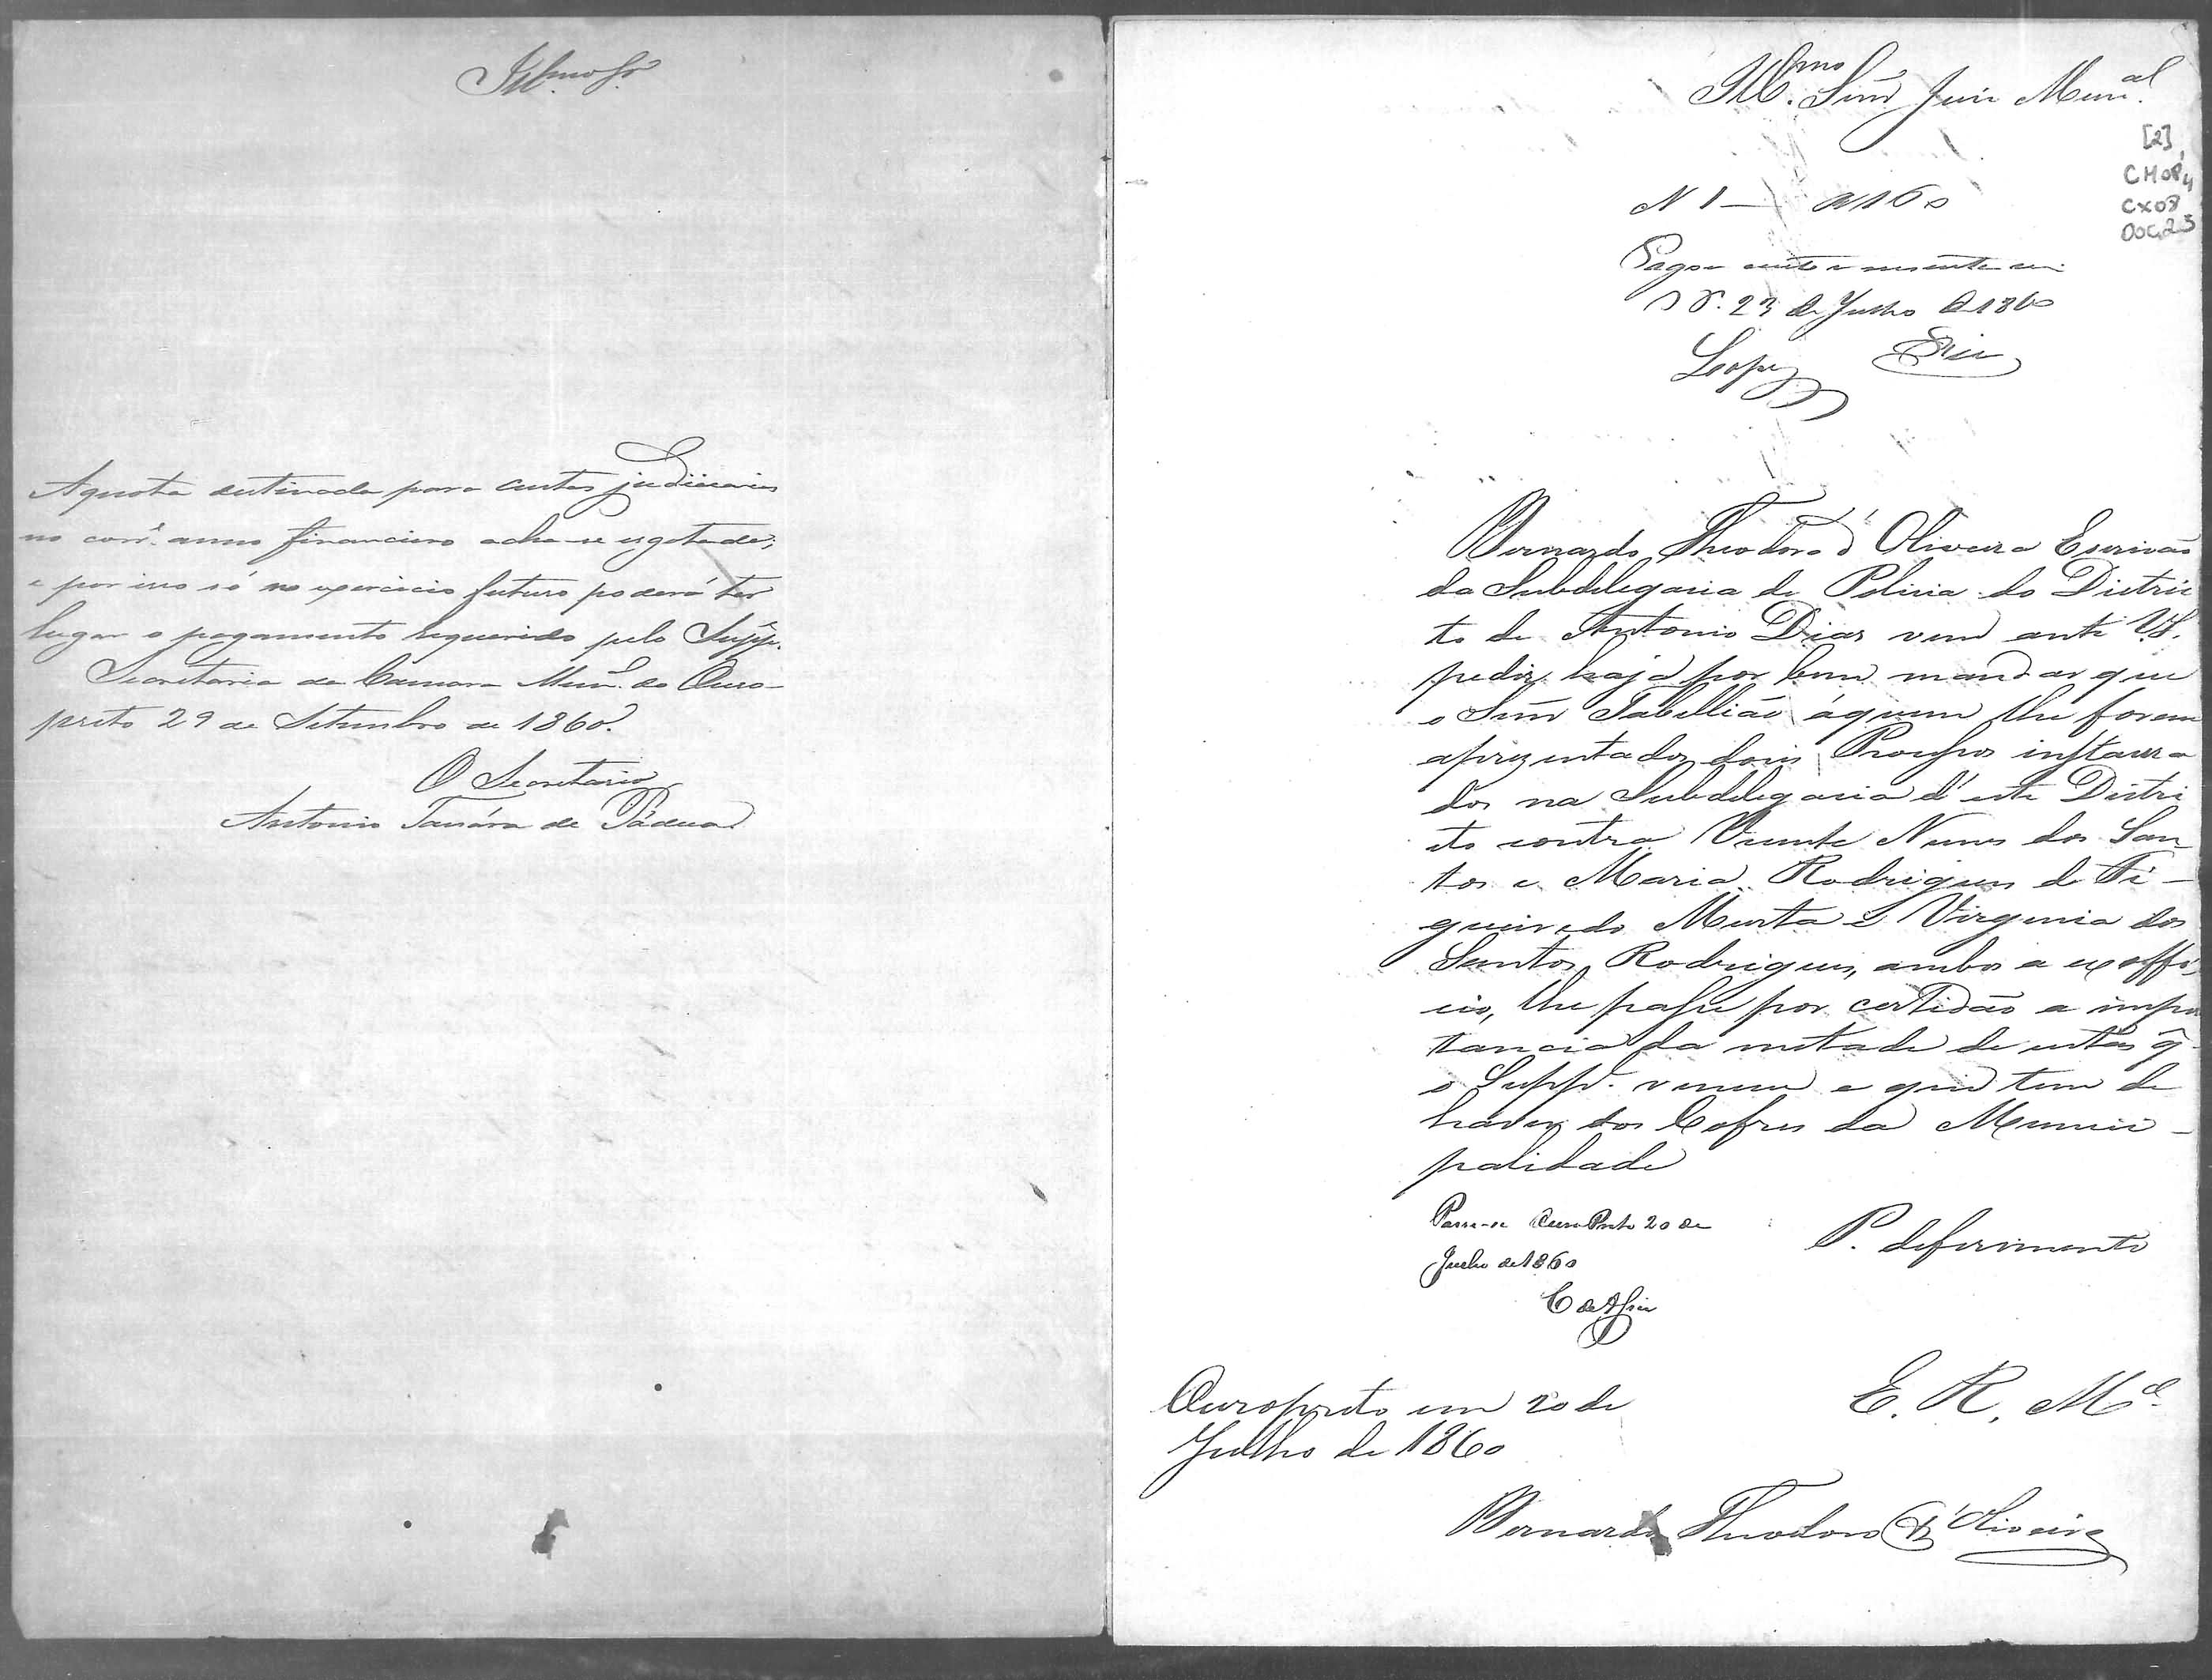 Illmo Sr.
A quota destinada para custas judiciarias
no corr.e anno financeiro acha-se esgotada,
e por isso só no exercicio futuro poderá ter
lugar o pagamento requerido pelo Supp.e
Secretaria da Camara Mun.l do Ouro-
preto 29 de Setembro de 1860.
O Secretario
Antonio de Padua
Illmo. Snr Juiz Munal.
[2]
CMOP
CX08
DOC.23
N 1 — 160
Pagou cento e sessenta rs.
23 de Julho de 1860
Lopes
Bernardo Theodoro d'Oliveira Escrivão
da Subdelegacia de Policia do Distric
to de Antonio Dias vem ante V.S.
pedir haja por bem mandar que
o Snr Tabellião áquem lhe forem
aprezentados dois Processos instaura
dos na Subdelegacia d'este Distri
cto contra Vicente Nunes dos San
tos e Maria Rodrigues de Fi-
gueiredo Murta e Virginia dos
Santos Rodrigues, ambos a ex offi
cio, lhe passe por certidão a impor
tancia da metade de custas q̃
o Supp.e venceu e que tem de
haver dos Cofres da Munici-
palidade
Passe-se Ouro Preto 20 de
Julho de 1860
P. deferimento
Ouropreto em 20 de
Julho de 1860
E. R. M.ce
Bernardo Theodoro d'Oliveira